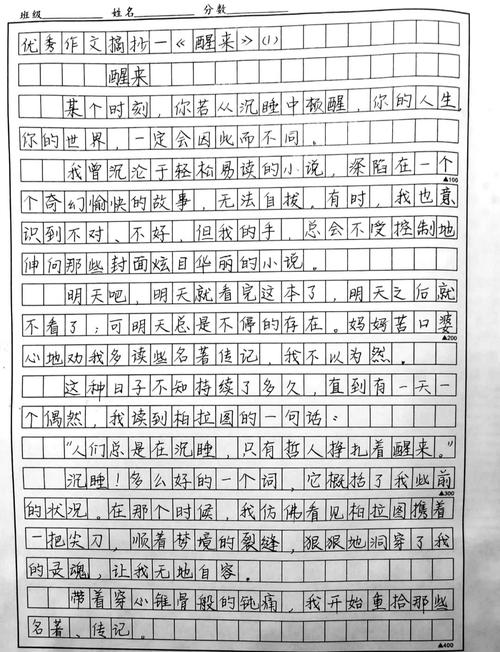 班级 姓名 分数
优秀作文摘抄一《醒来》(1)
醒来
某个时刻，你若从沉睡中顿醒，你的人生
你的世界，一定会因此而不同。
我曾沉沦于轻松易读的小说，深陷在一个
▲100
个奇幻愉快的故事，无法自拔。有时，我也意
识到不对、不好，但我的手，总会不受控制地
伸向那些封面炫目华丽的小说。
明天吧，明天就看完这本了，明天之后就
不看了；可明天总是不停的存在。妈妈苦口婆
▲200
心地劝我多读些名著传记，我不以为然。
这种日子不知持续了多久，直到有一天一
个偶然，我读到柏拉图的一句话：
“人们总是在沉睡，只有哲人挣扎着醒来。”
沉睡！多么好的一个词，它概括了我此前
▲300
的状况。在那个时候，我仿佛看见柏拉图携着
一把尖刀，顺着梦境的裂缝，狠狠地洞穿了我
的灵魂，让我无地自容。
带着穿小锥骨般的钝痛，我开始重拾那些
名著、传记。
▲400